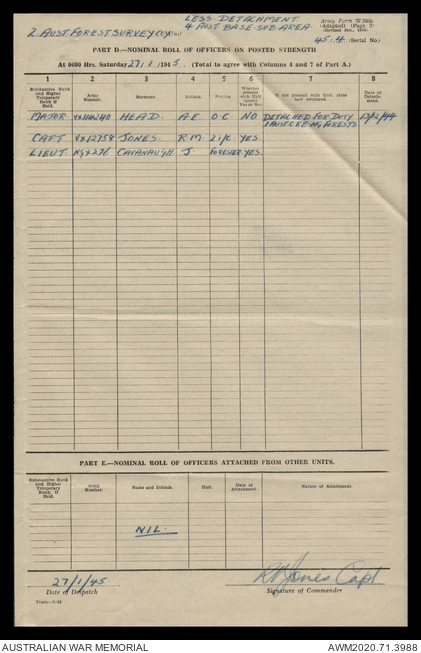 LESS DETACHMENT
Army Form W 3008
2. AUST. FOREST SURVEY COY (Unit) 4 AUST BASE SUB AREA
(Adapted) (Page 2)
45/4. (Serial No.)
PART D.—NOMINAL ROLL OF OFFICERS ON POSTED STRENGTH
At 0600 Hrs. Saturday 27/1/1945. (Total to agree with Columns 4 and 7 of Part A.)
1 2 3 4 5 6 7 8
Substantive Rank and Higher Temporary Rank if Held. Army Number. Surname. Initials. Posting. Whether present with Unit (insert Yes or No) If not present with Unit, state how employed. Date of Detachment.
MAJOR HEAD. A.E. O.C. NO DETACHED FOR DUTY
1 AUST CRE NG FORESTS
CAPT VX12754 JONES. R.M. 2 i/c. YES.
LIEUT NGX276 CAVANAUGH J FORESTER YES.
PART E.—NOMINAL ROLL OF OFFICERS ATTACHED FROM OTHER UNITS.
Substantive Rank and Higher Temporary Rank, if Held. Army Number. Name and Initials. Unit. Date of Attachment. Nature of Attachment.
NIL.
27/1/45
RM Jones Capt
Date of Despatch
Signature of Commander
AUSTRALIAN WAR MEMORIAL
AWM2020.71.3988